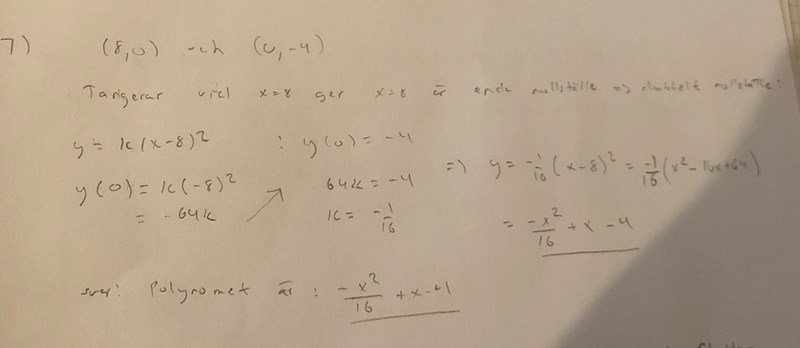 7) (8,0) och (0,-4)
Tangerar vid x=8 ger x=8 är enda nollställe => dubbelt nollställe:
y = k(x-8)² : y(0) = -4
y(0) = k(-8)² 64k = -4 => y = -1/16 (x-8)² = -1/16 (x² - 16x + 64)
= -64k k = -1/16 = -x²/16 + x - 4
svar: Polynomet är : -x²/16 + x - 4